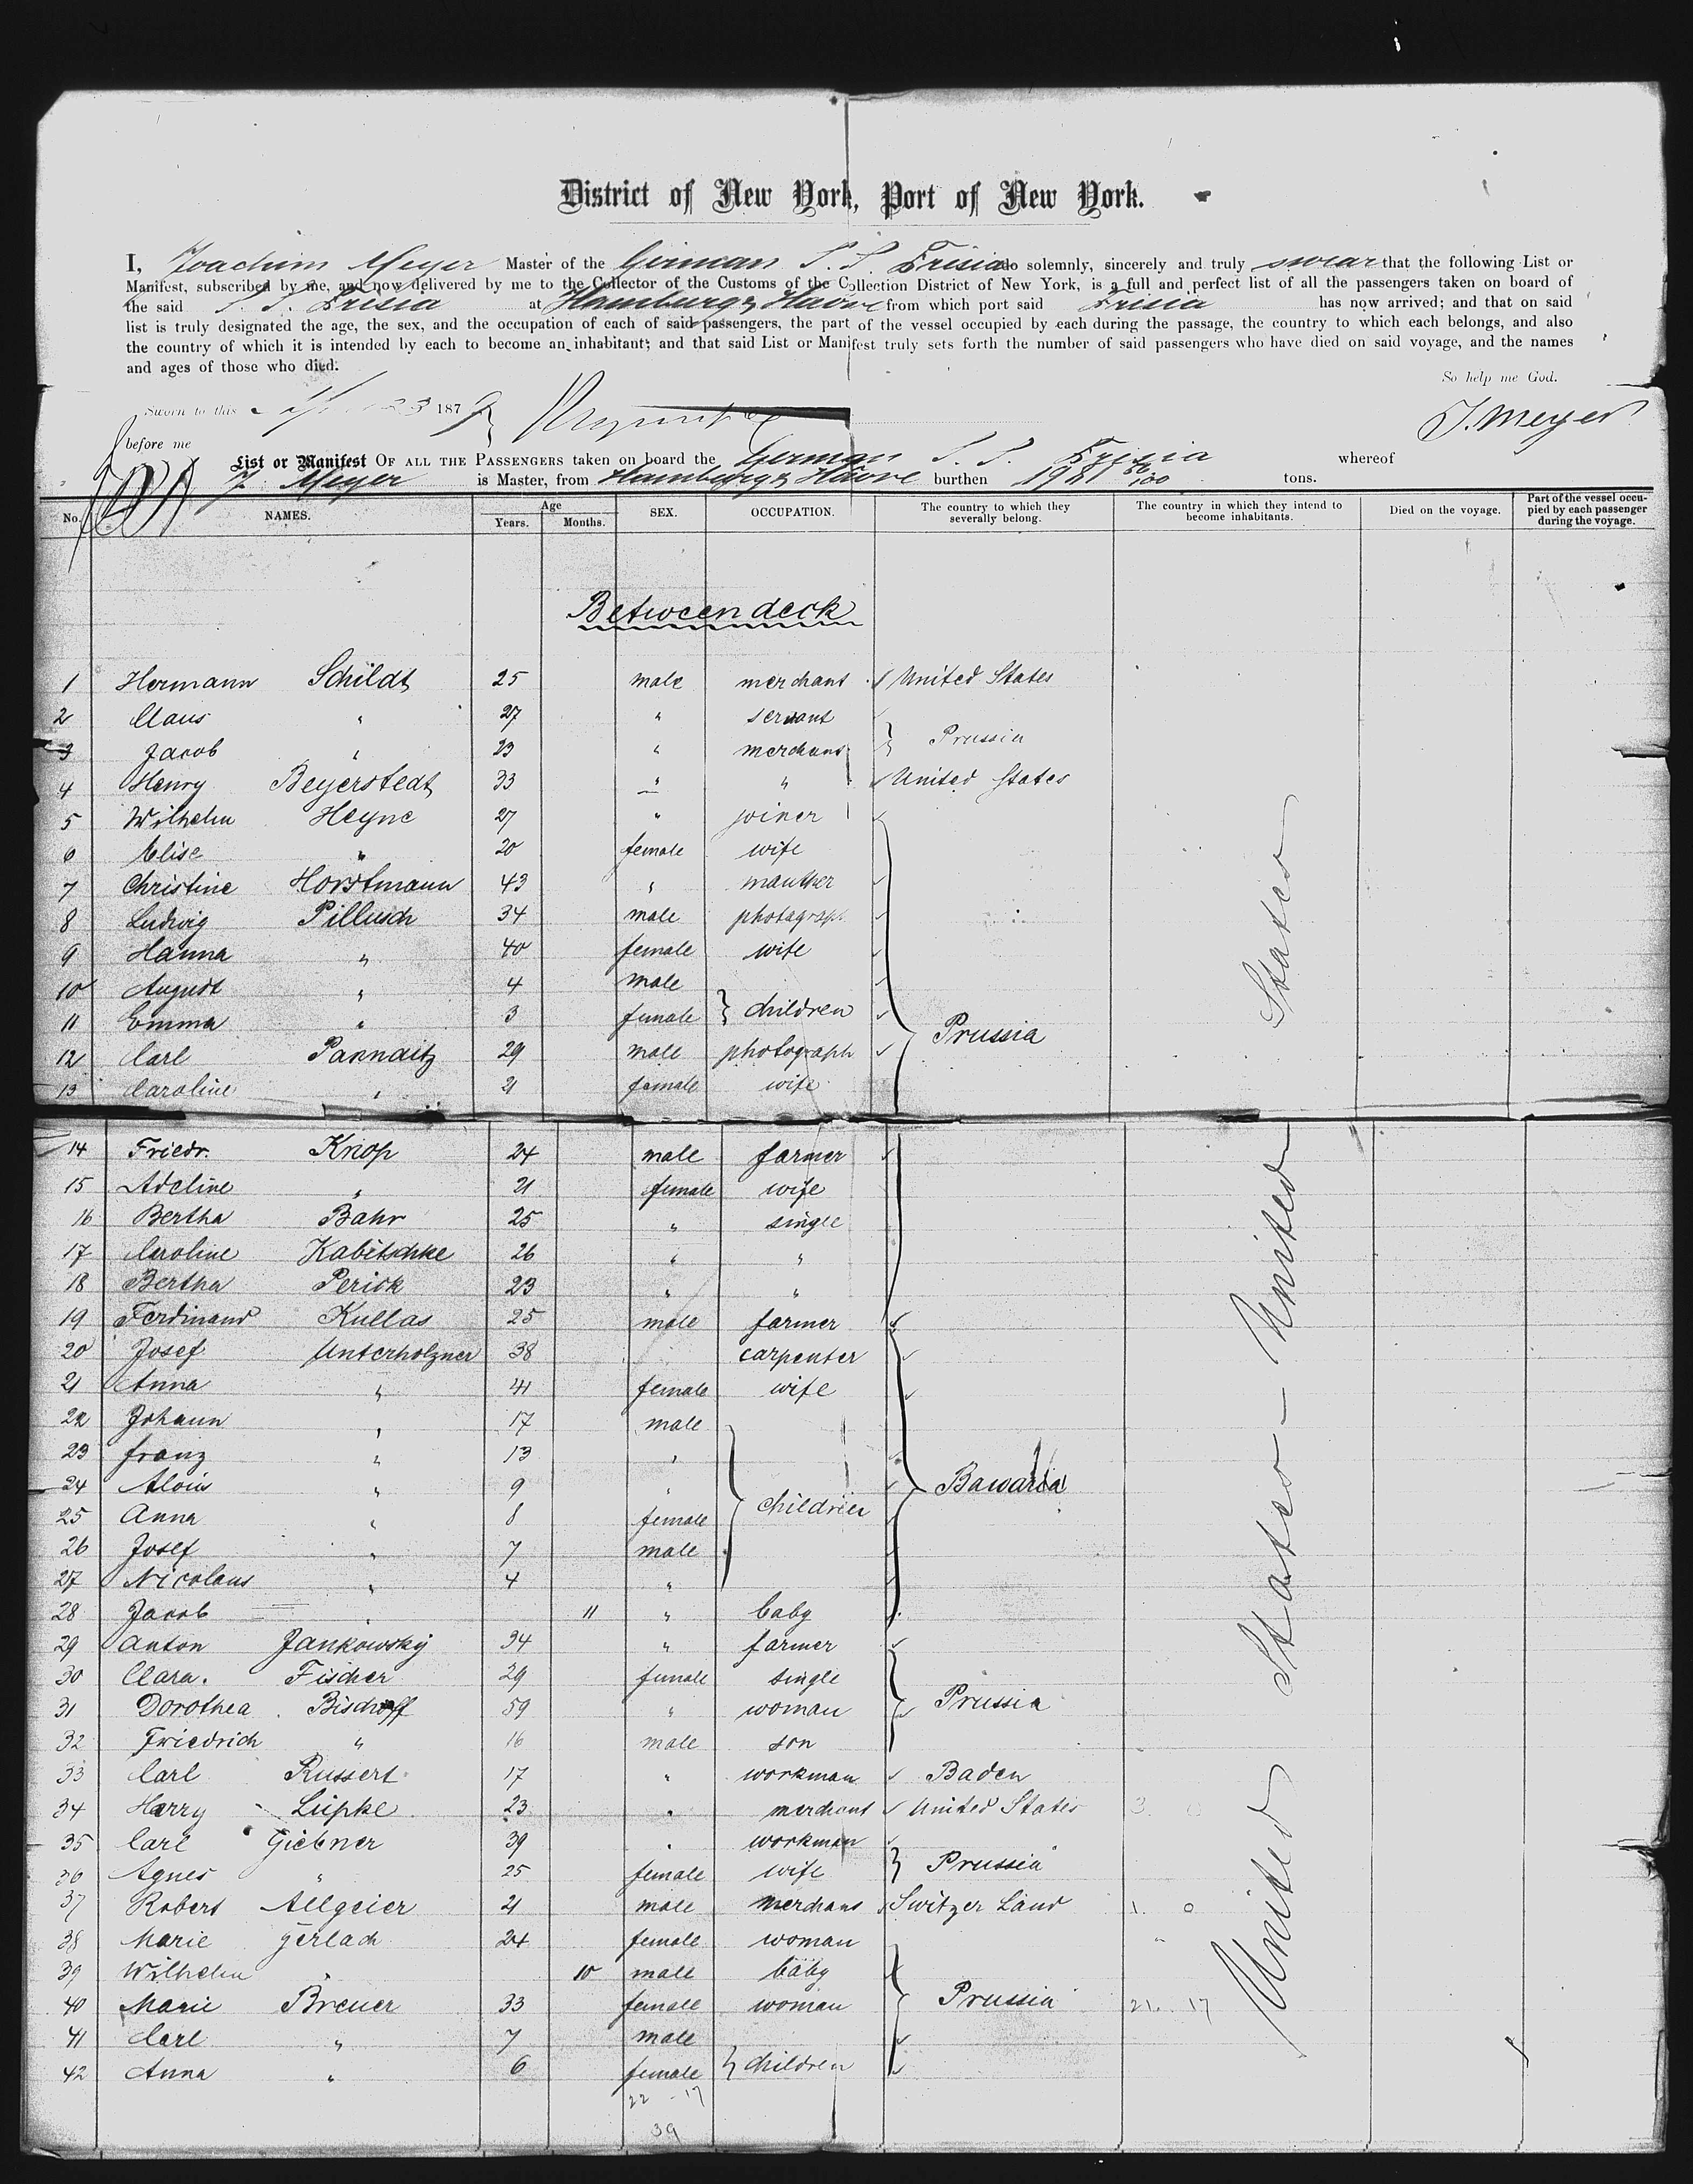 District of New York, Port of New York.
I, Joachim Meyer Master of the German S. S. Frisia do solemnly, sincerely and truly swear that the following List or
Manifest, subscribed by me, and now delivered by me to the Collector of the Customs of the Collection District of New York, is a full and perfect list of all the passengers taken on board of
the said S. S. Frisia at Hamburg & Havre from which port said Frisia has now arrived; and that on said
list is truly designated the age, the sex, and the occupation of each of said passengers, the part of the vessel occupied by each during the passage, the country to which each belongs, and also
the country of which it is intended by each to become an inhabitant; and that said List or Manifest truly sets forth the number of said passengers who have died on said voyage, and the names
and ages of those who died.
So help me God.
Sworn to this 23 1879
J. Meyer
before me
List or Manifest OF ALL THE PASSENGERS taken on board the German S. S. Frisia whereof
J. Meyer is Master, from Hamburg & Havre burthen tons.
No. NAMES. Age Years. Months. SEX. OCCUPATION. The country to which they severally belong. The country in which they intend to become inhabitants. Died on the voyage. Part of the vessel occupied by each passenger during the voyage.
Between deck
1 Hermann Schildt 25 male merchant United States
2 Claus " 27 " servant
3 Jacob " 23 " merchant } Prussia
4 Henry Beyerstedt 33 " " United States
5 Wilhelm Heyne 27 " joiner
6 Elise " 20 female wife
7 Christine Horstmann 43 " mauther
8 Ludwig Pillusch 34 male photagraph
9 Hanna " 40 female wife
10 August " 4 male
11 Emma " 3 female } children
12 Carl Pannaitz 29 male photograph } Prussia
13 Caroline " 21 female wife
14 Friedr. Knop 24 male farmer
15 Adeline " 21 female wife
16 Bertha Bahr 25 " single
17 Caroline Kabitschke 26 " "
18 Bertha Perick 23 " "
19 Ferdinand Kullas 25 male farmer
20 Josef Unterholzner 38 carpenter
21 Anna " 41 female wife
22 Johann " 17 male
23 franz " 13 "
24 Alois " 9 " } Bawaria
25 Anna " 8 female } children
26 Josef " 7 male
27 Nicolaus " 4 "
28 Jacob " 11 " baby
29 Anton Jankowsky 34 " farmer
30 Clara. Fischer 29 female single
31 Dorothea Bischoff 59 " woman } Prussia
32 Friedrich " 16 male son
33 Carl Russert 17 " workman Baden
34 Harry Lüpke 23 " merchant United States
35 Carl Giebner 39 " workman
36 Agnes " 25 female wife } Prussia
37 Robert Allgeier 21 male merchant Switzer Land
38 Marie Gerlach 24 female woman
39 Wilhelm " 10 male baby
40 Marie Breuer 33 female woman } Prussia 21. 17
41 Carl " 7 male
42 Anna " 6 female } children
22 - 17
39
United States - United States